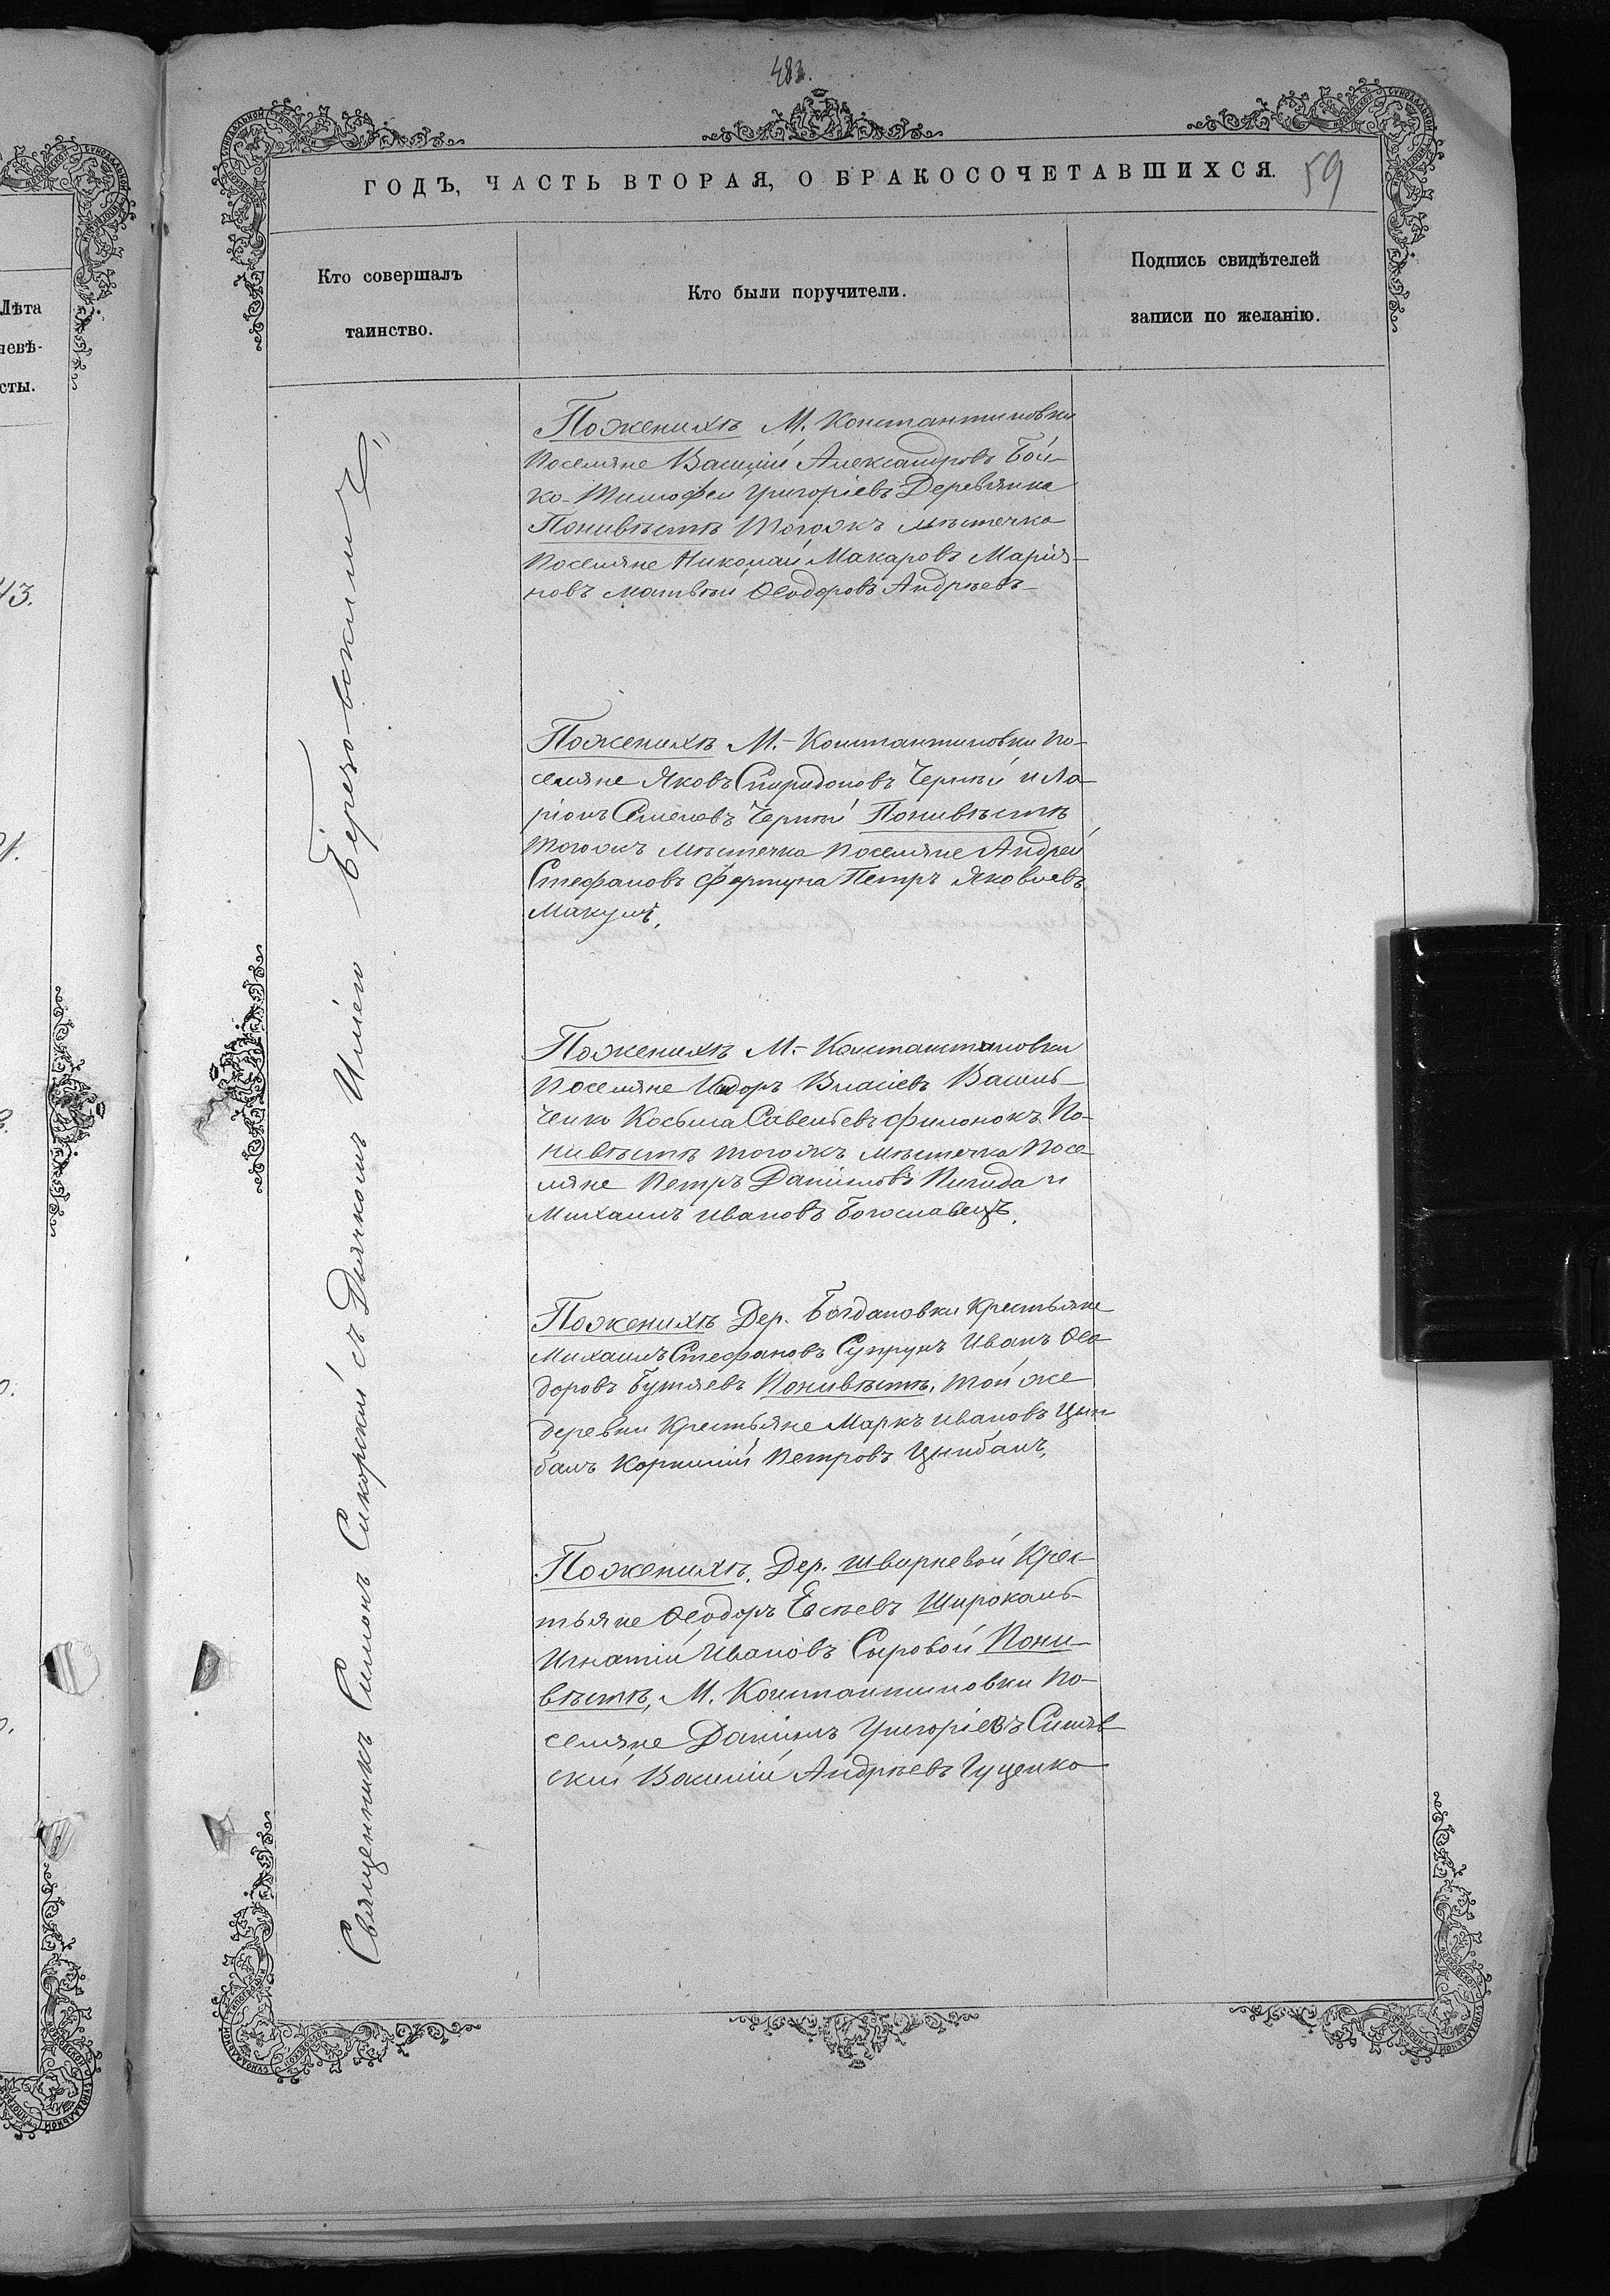 483.
ГОДЪ, ЧАСТЬ ВТОРАЯ, О БРАКОСОЧЕТАВШИХСЯ.
59
Лѣта
невѣ-
сты.
43.
Кто совершалъ
таинство.
Кто были поручители.
Подпись свидѣтелей
записи по желанію.
Священникъ Симонъ Сикорскій съ Дьячкомъ Иліею Березовскимъ
Поженихѣ М. Константиновки
поселяне Василій Александровъ Бой-
ко Тимофей Григоріевъ Деревянка
Поневѣстѣ тогожъ мѣстечка
поселяне Николай Макаровъ Марія-
новъ Матвѣй Ѳеодоровъ Андрѣевъ
Поженихѣ М. Константиновки по-
селяне Яковъ Спиридоновъ Черный и Ла-
ріонъ Семеновъ Черный Поневѣстѣ
тогожъ мѣстечка поселяне Андрей
Стефановъ Фортуна Петръ Яковлевъ
Поженихѣ М. Константиновки
поселяне Власіевъ Василь-
ченко Косьма Савельевъ Филонокъ По-
невѣстѣ тогожъ мѣстечка посе-
ляне Петръ Даниловъ и
Михаилъ Ивановъ Богославецъ.
Поженихѣ Дер. Богдановки Крестьяне
Михаилъ Стефановъ Супрунъ Иванъ Ѳео-
доровъ Поневѣстѣ, той же
деревни Крестьяне Маркъ Ивановъ Цым-
балъ Корнилій Петровъ Цымбалъ,
Поженихѣ, Дер. Швырневой Крес-
тьяне Ѳеодоръ Евсѣевъ
Игнатій Ивановъ Сыровой Поне-
вѣстѣ, М. Константиновки по-
селяне Даніилъ Григоріевъ Синяв-
скій Василій Андрѣевъ Гуценко